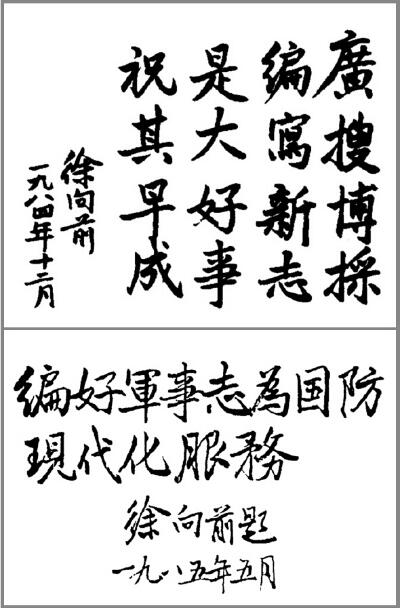 廣搜博採
编寫新志
是大好事
祝其早成
徐向前
一九八四年十二月
编好軍事志為国防
現代化服務
徐向前题
一九八五年五月